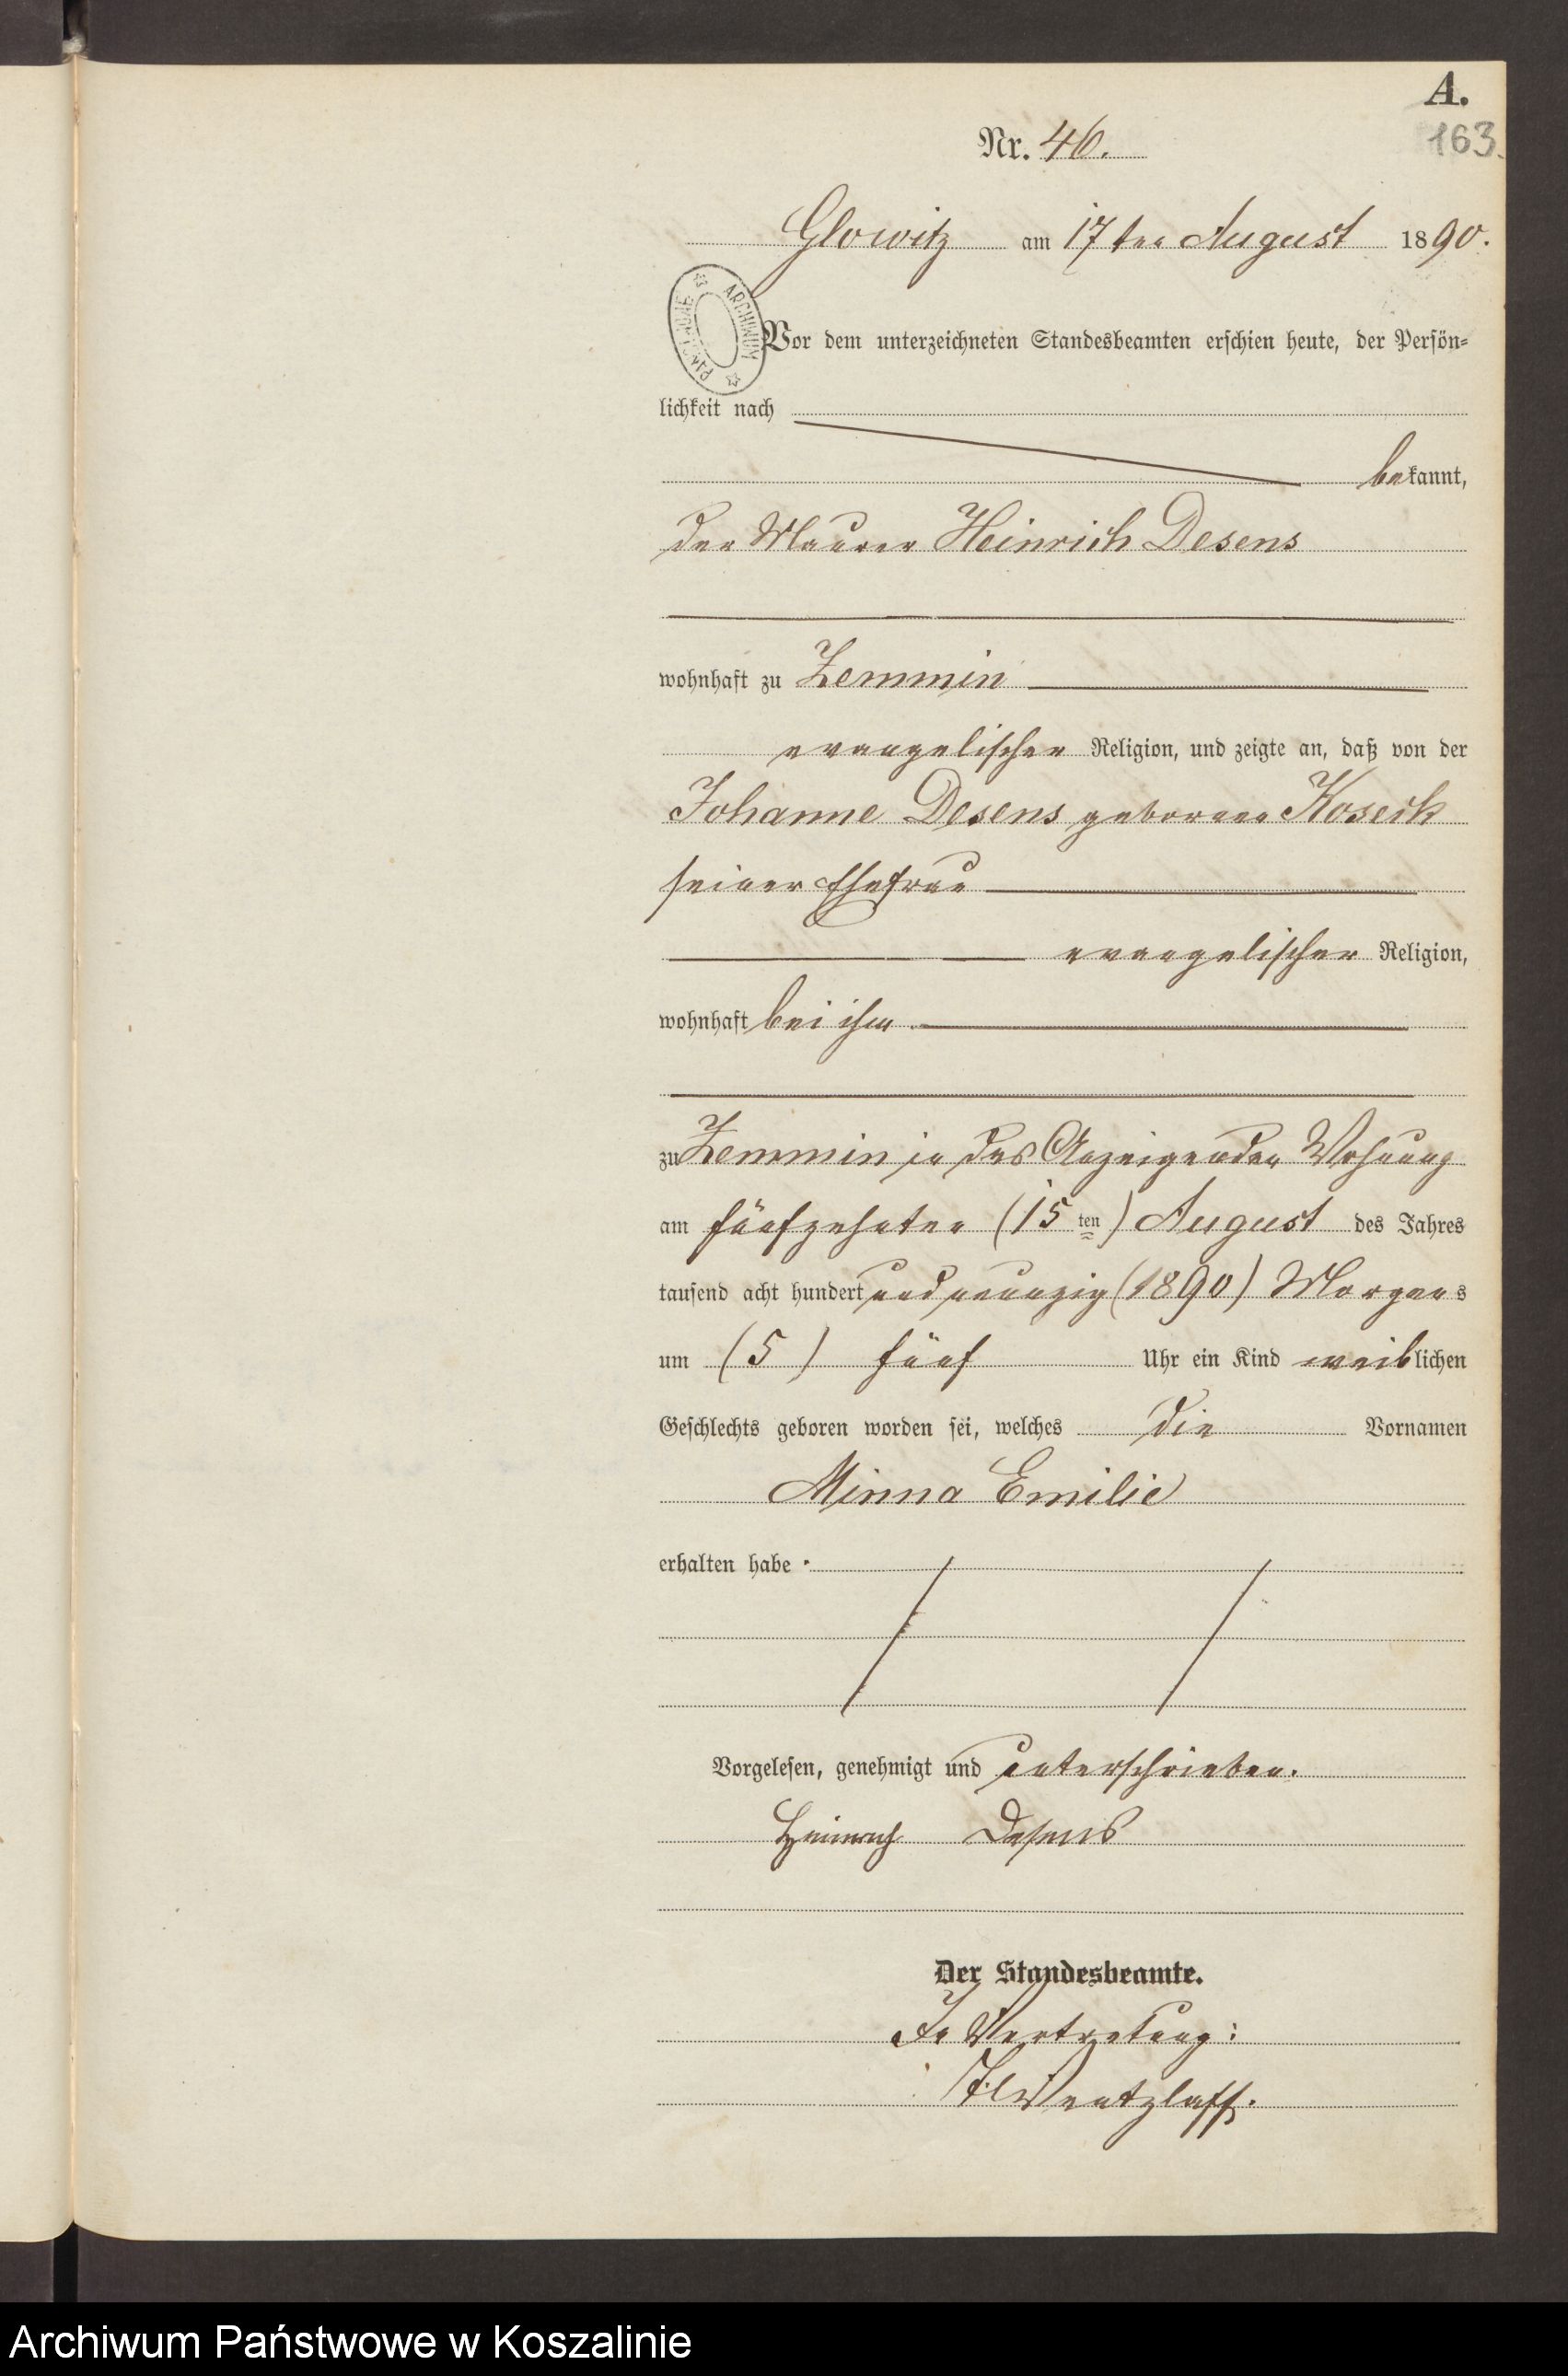 A.
163.
Nr. 46.
Glowitz am 17ten August 1890.
ARCHIWUM PAŃSTWOWE
Vor dem unterzeichneten Standesbeamten erschien heute, der Persön-
lichkeit nach
bekannt,
der Maurer Heinrich Desens
wohnhaft zu Zemmin
evangelischer Religion, und zeigte an, daß von der
Johanne Desens geborene Koseck
seiner Ehefrau
evangelischer Religion,
wohnhaft bei ihm
zu Zemmin in des Anzeigenden Wohnung
am fünfzehnten (15ten) August des Jahres
tausend acht hundert und neunzig (1890) Morgens
um (5) fünf Uhr ein Kind weiblichen
Geschlechts geboren worden sei, welches die Vornamen
Minna Emilie
erhalten habe.
Vorgelesen, genehmigt und unterschrieben.
Heinrich Desens
Der Standesbeamte.
In Vertretung:
Wentzlaff.
Archiwum Państwowe w Koszalinie